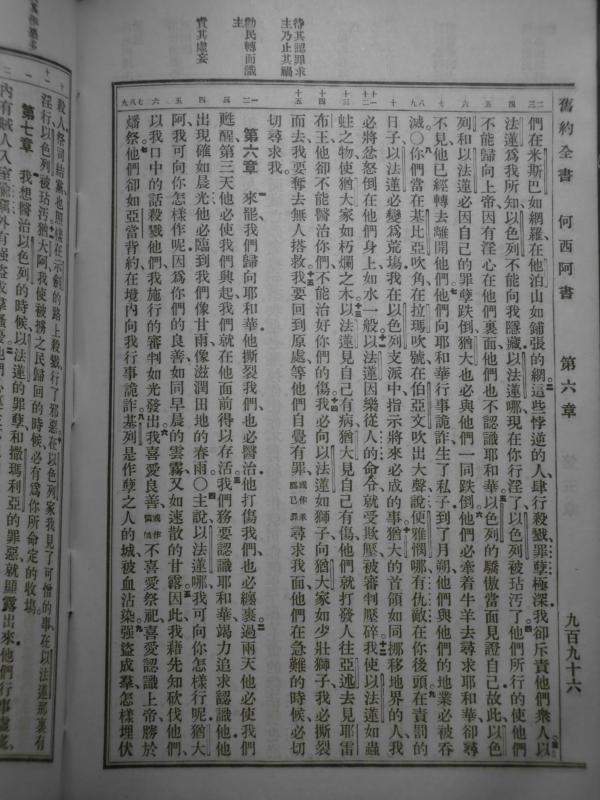 舊約全書　何西阿書　第六章　九百九十六
待其認罪求
主乃止其禍
勸民轉而識
主
責其虛妄
二三
們在米斯巴如網羅在他泊山如鋪張的網這些悖逆的人肆行殺戮罪孽極深我卻斥責他們衆人以
三
法蓮爲我所知以色列不能向我隱藏以法蓮哪現在你行淫了以色列被玷汚了他們所行的使他們
四
不能歸向上帝因有淫心在他們裏面他們也不認識耶和華以色列的驕傲當面見證自己故此以色
五
列和以法蓮必因自己的罪孽跌倒猶大也必與他們一同跌倒他們必牽着牛羊去尋求耶和華卻尋
六
不見他已經轉去離開他們他們向耶和華行事詭詐生了私子到了月朔他們與他們的地業必被吞
七
滅〇你們當在基比亞吹角在拉瑪吹號在伯亞文吹出大聲說便雅憫哪有仇敵在你後頭在責罰的
八九
日子以法蓮必變爲荒場我在以色列支派中指示將來必成的事猶大的首領如同挪移地界的人我
十
必將忿怒倒在他們身上如水一般以法蓮因樂從人的命令就受欺壓被審判壓碎我使以法蓮如蟲
十一十二
蛀之物使猶大家如朽爛之木以法蓮見自己有病猶大見自己有傷他們就打發人往亞述去見耶雷
十三
布王他卻不能醫治你們不能治好你們的傷我必向以法蓮如獅子向猶大家如少壯獅子我必撕裂
十四
而去我要奪去無人搭救我要回到原處等他們自覺有罪或作承認己罪尋求我面他們在急難的時候必切
十五
切尋求我
第六章　來罷我們歸向耶和華他撕裂我們也必醫治他打傷我們也必纏裹過兩天他必使我們
一二
甦醒第三天他必使我們興起我們就在他面前得以存活我們務要認識耶和華竭力追求認識他他
三
出現確如晨光他必臨到我們像甘雨像滋潤田地的春雨〇主說以法蓮哪我可向你怎樣行呢猶大
四
阿我可向你怎樣作呢因爲你們的良善如同早晨的雲霧又如速散的甘露因此我藉先知砍伐他們
五
以我口中的話殺戮他們我施行的審判如光發出我喜愛良善或作憐恤不喜愛祭祀喜愛認識上帝勝於
六
燔祭他們卻如亞當背約在境內向我行事詭詐基列是作孽之人的城被血沾染强盜成羣怎樣埋伏
七八九
殺人祭司結黨也照樣在示劍的路上殺戮行了邪惡在以色列家我見了可憎的事在以法蓮那裏有
十
淫行以色列被玷汚猶大阿我使被擄之民歸回的時候必有爲你所命定的收場
十一
第七章　我想醫治以色列的時候以法蓮的罪孽和撒瑪利亞的罪惡就顯露出來他們行事虛
一
內有賊人入室偷竊外有强盜